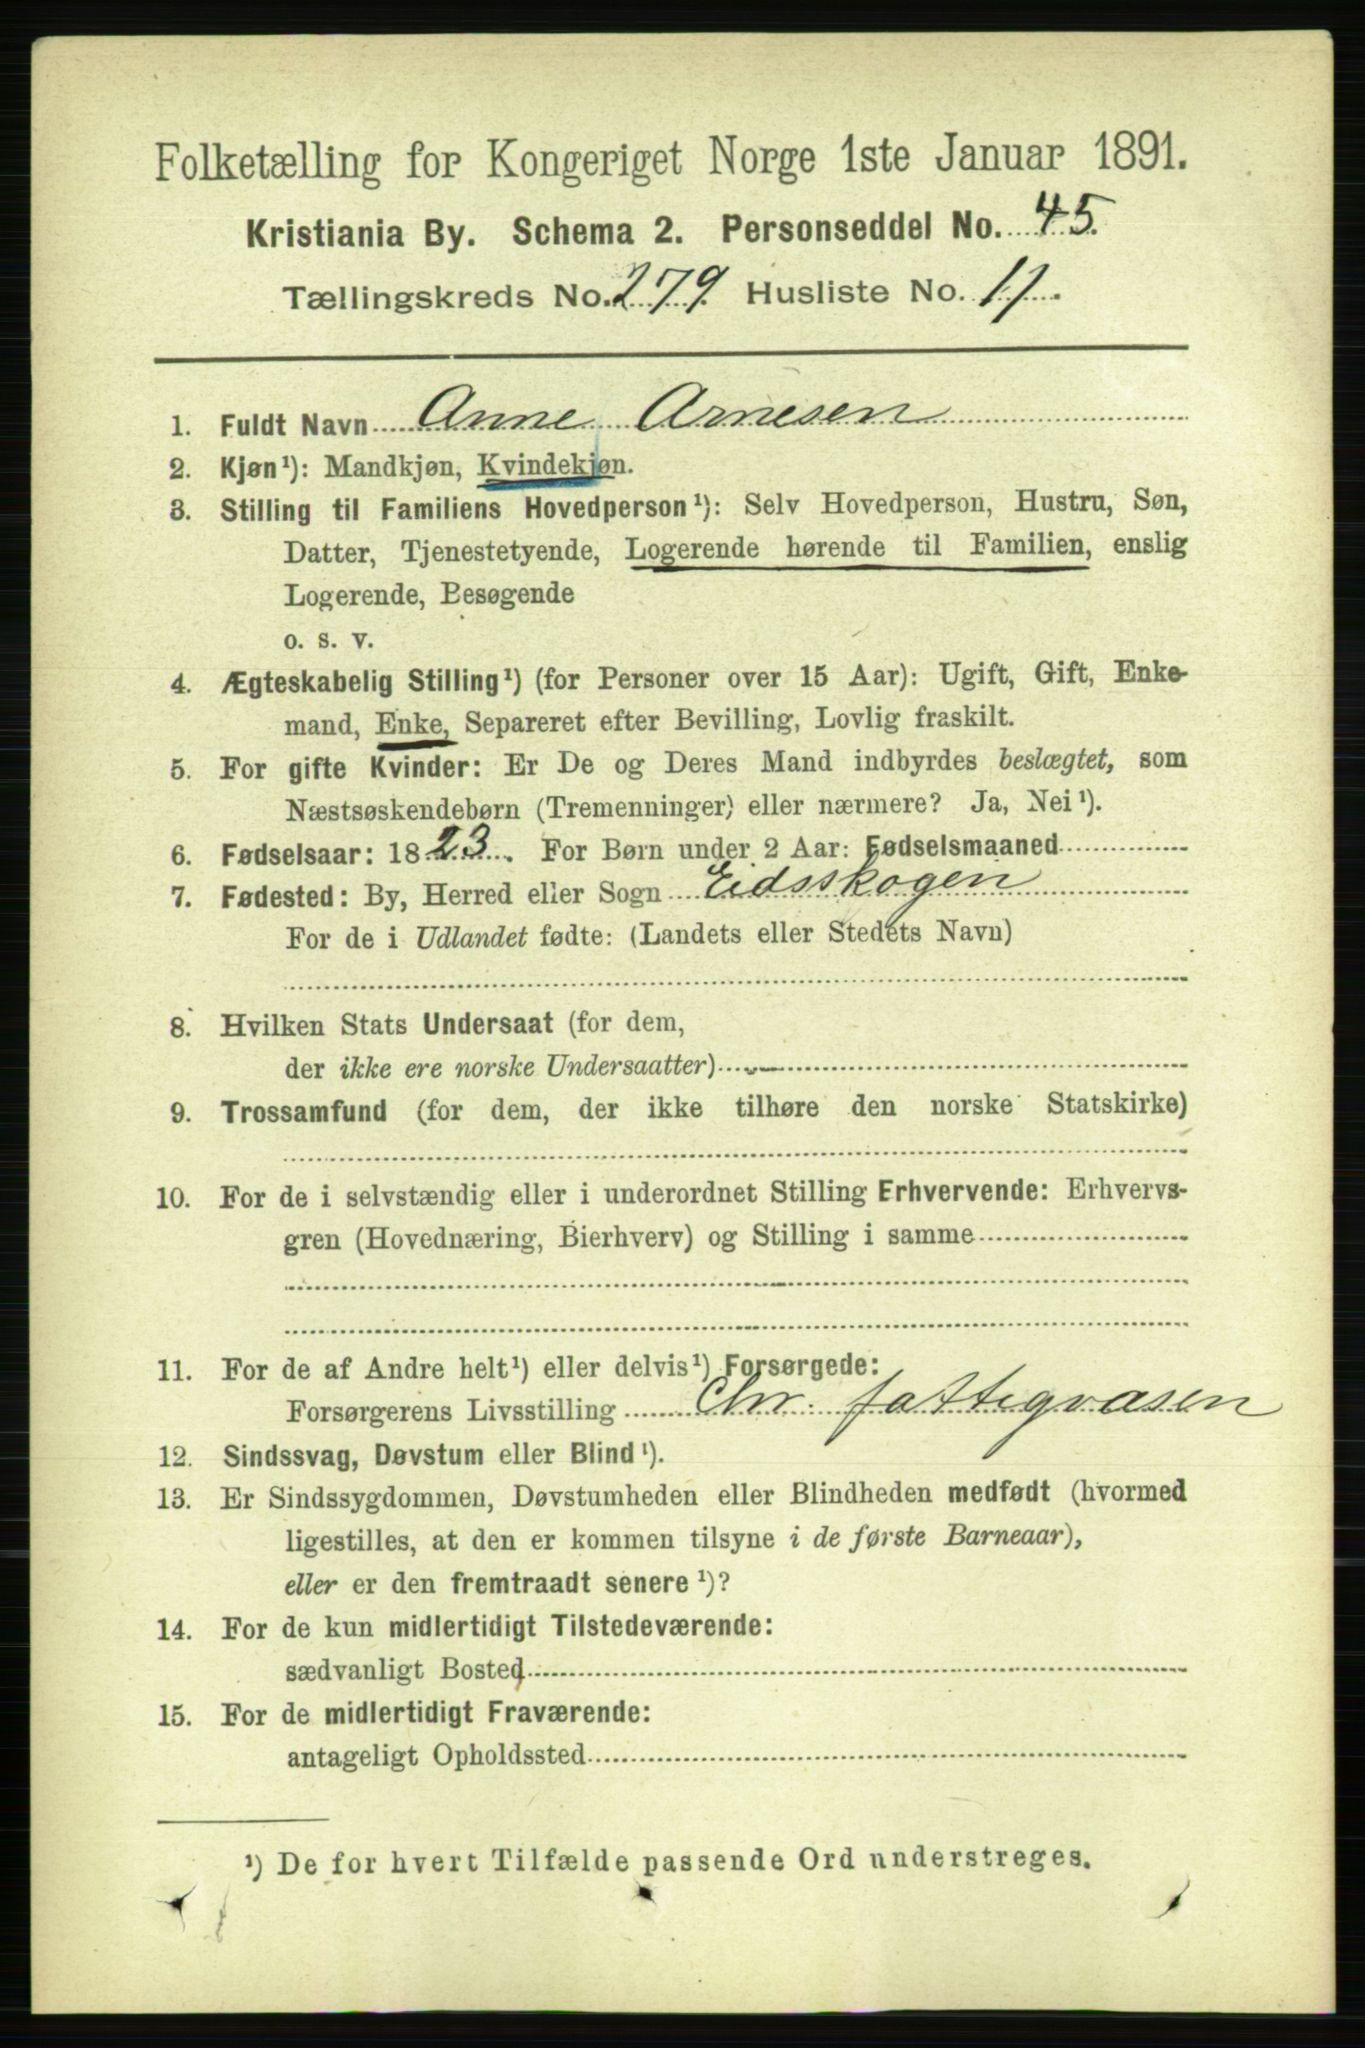 Folketælling for Kongeriget Norge 1ste Januar 1891.
Kristiania By. Schema 2. Personseddel No. 45.
Tællingskreds No. 279. Husliste No. 11.
1. Fuldt Navn Anne Arnesen
2. Kjøn¹): Mandkjøn, Kvindekjøn.
3. Stilling til Familiens Hovedperson¹): Selv Hovedperson, Hustru, Søn,
Datter, Tjenestetyende, Logerende hørende til Familien, enslig
Logerende, Besøgende
o. s. v.
4. Ægteskabelig Stilling¹) (for Personer over 15 Aar): Ugift, Gift, Enke-
mand, Enke, Separeret efter Bevilling, Lovlig fraskilt.
5. For gifte Kvinder: Er De og Deres Mand indbyrdes beslægtet, som
Næstsøskendebørn (Tremenninger) eller nærmere? Ja, Nei¹).
6. Fødselsaar: 1823. For Børn under 2 Aar: Fødselsmaaned
7. Fødested: By, Herred eller Sogn Eidsskogen
For de i Udlandet fødte: (Landets eller Stedets Navn)
8. Hvilken Stats Undersaat (for dem,
der ikke ere norske Undersaatter)
9. Trossamfund (for dem, der ikke tilhøre den norske Statskirke)
10. For de i selvstændig eller i underordnet Stilling Erhvervende: Erhvervs-
gren (Hovednæring, Bierhverv) og Stilling i samme
11. For de af Andre helt¹) eller delvis¹) Forsørgede:
Forsørgerens Livsstilling Chr. fattigvæsen
12. Sindssvag, Døvstum eller Blind¹).
13. Er Sindssygdommen, Døvstumheden eller Blindheden medfødt (hvormed
ligestilles, at den er kommen tilsyne i de første Barneaar),
eller er den fremtraadt senere¹)?
14. For de kun midlertidigt Tilstedeværende:
sædvanligt Bosted
15. For de midlertidigt Fraværende:
antageligt Opholdssted
¹) De for hvert Tilfælde passende Ord understreges.